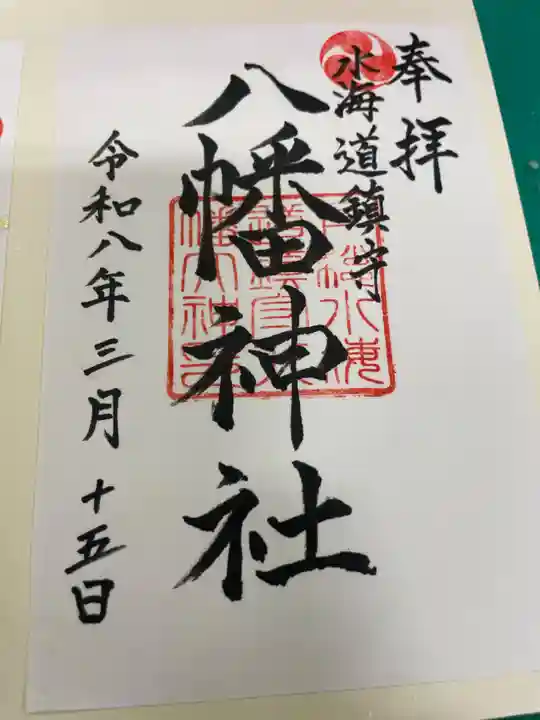 奉拝
水海道鎮守
八幡神社
令和八年三月十五日